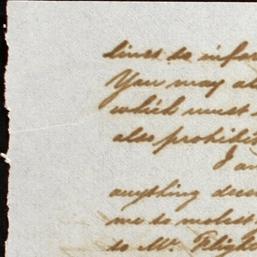 must do infor
You may al
which must
also prohibit
I am
anything
me to molest
to Mr. Flight